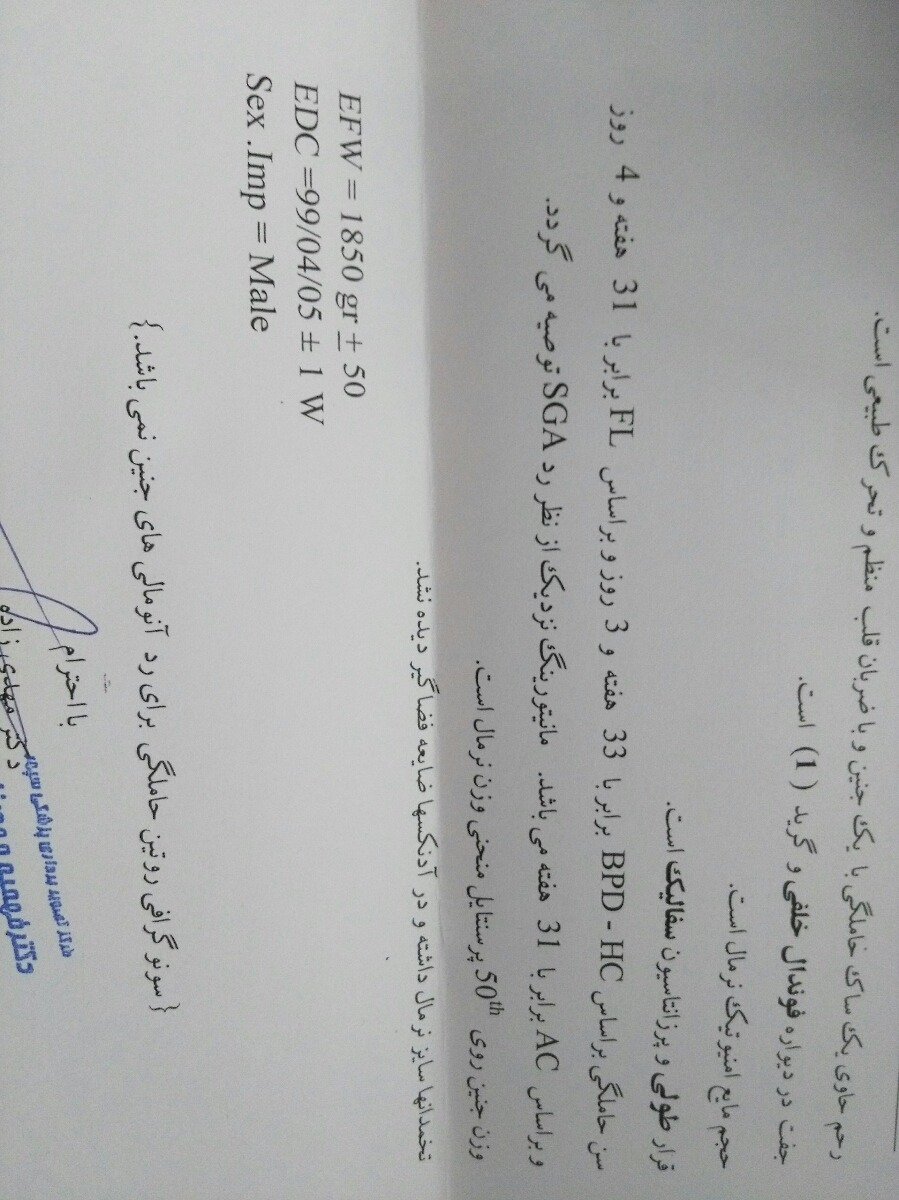 رحم حاوی یک ساک حاملگی با یک جنین و با ضربان قلب منظم و تحرک طبیعی است.
جفت در دیواره فوندال خلفی و گرید (1) است.
حجم مایع امنیوتیک نرمال است.
قرار طولی و پرزانتاسیون سفالیک است.
سن حاملگی براساس BPD - HC برابر با 33 هفته و 3 روز و براساس FL برابر با 31 هفته و 4 روز
و براساس AC برابر با 31 هفته می باشد. مانیتورینگ نزدیک از نظر رد SGA توصیه می گردد.
وزن جنین روی 50th پرسنتایل منحنی وزن نرمال است.
تخمدانها سایز نرمال داشته و در آدنکسها ضایعه فضاگیر دیده نشد.
EFW = 1850 gr ± 50
EDC =99/04/05 ± 1 W
Sex .Imp = Male
{سونوگرافی روتین حاملگی برای رد آنومالی های جنین نمی باشد.}
با احترام
دکتر مهدی زاده
مرکز تصویر برداری پزشکی سپهر
دکتر فهیمه